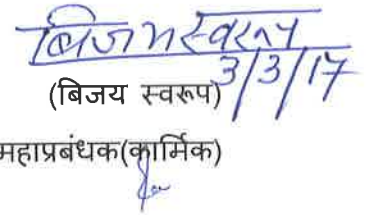 बिजय स्वरूप
3/3/17
(बिजय स्वरूप)
महाप्रबंधक(कार्मिक)